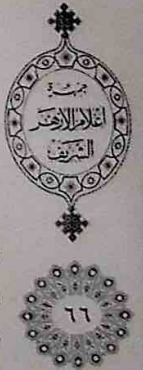 جمهرة
أعلام الأزهر
الشريف
٦٦